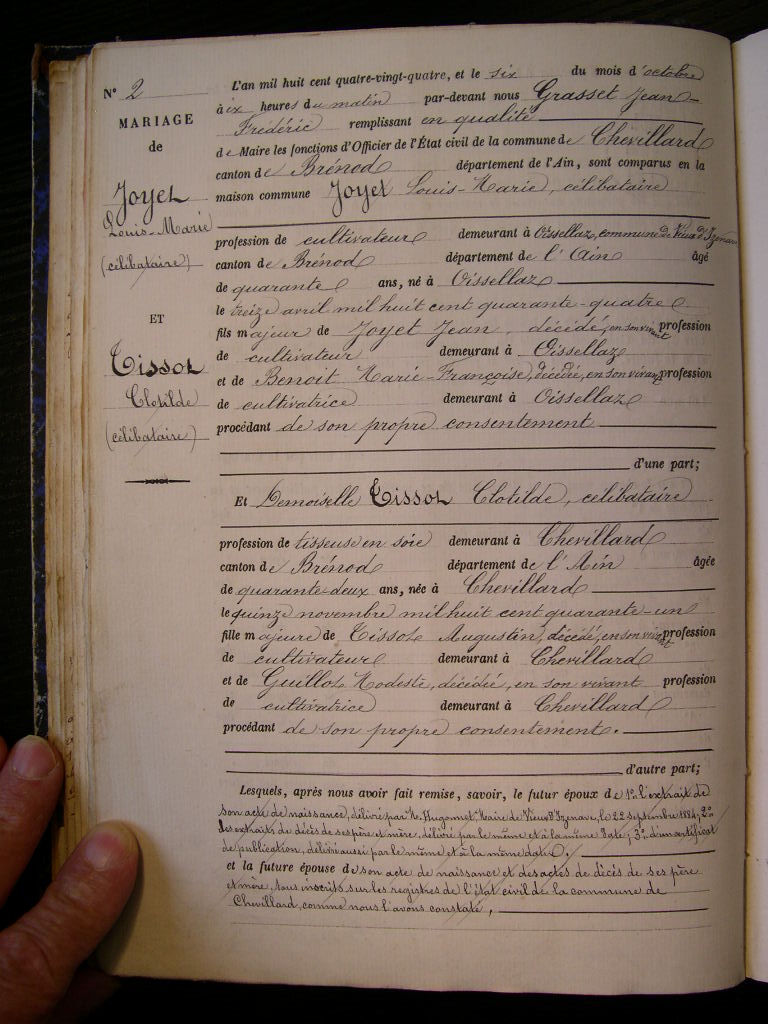 N° 2
MARIAGE
de
Joyet
Louis-Marie
(célibataire)
ET
Tissot
Clotilde
(célibataire)
L'an mil huit cent quatre-vingt-quatre, et le six du mois d'octobre
à dix heures du matin par-devant nous Grasset Jean-
Frédéric remplissant en qualité
de Maire les fonctions d'Officier de l'État civil de la commune de Chevillard
canton de Brénod département de l'Ain, sont comparus en la
maison commune Joyet Louis-Marie, célibataire
profession de cultivateur demeurant à Oissellaz, commune de Vieux d'Izenave
canton de Brénod département de l'Ain âgé
de quarante ans, né à Oissellaz
le treize avril mil huit cent quarante-quatre
fils majeur de Joyet Jean, décédé, en son vivant profession
de cultivateur demeurant à Oissellaz
et de Benoit Marie-Françoise, décédée, en son vivant profession
de cultivatrice demeurant à Oissellaz
procédant de son propre consentement
d'une part;
Et Demoiselle Tissot Clotilde, célibataire
profession de tisseuse en soie demeurant à Chevillard
canton de Brénod département de l'Ain âgée
de quarante-deux ans, née à Chevillard
le quinze novembre mil huit cent quarante-un
fille majeure de Tissot Augustin, décédé, en son vivant profession
de cultivateur demeurant à Chevillard
et de Guillot Modeste, décédée, en son vivant profession
de cultivatrice demeurant à Chevillard
procédant de son propre consentement.
d'autre part;
Lesquels, après nous avoir fait remise, savoir, le futur époux de 1° l'extrait de
son acte de naissance, délivré par M. Hugonnet, Maire de Vieux d'Izenave, le 22 septembre 1884; 2°
des extraits de décès de ses père et mère, délivrés par le même et à la même date; 3° d'un certificat
de publication, délivré aussi par le même et à la même date.
et la future épouse de son acte de naissance et des actes de décès de ses père
et mère, tous inscrits sur les registres de l'état civil de la commune de
Chevillard, comme nous l'avons constaté,